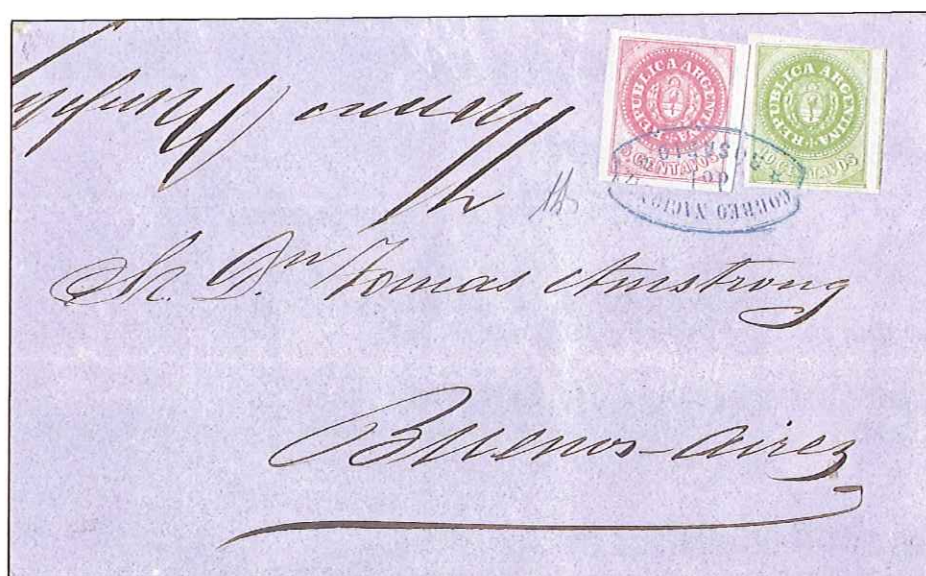 REPUBLICA ARGENTINA
5 CENTAVOS
REPUBLICA ARGENTINA
10 CENTAVOS
CORREO NACION
del
ROSARIO
Sr. Dn Tomas Armstrong
Buenos-Airez